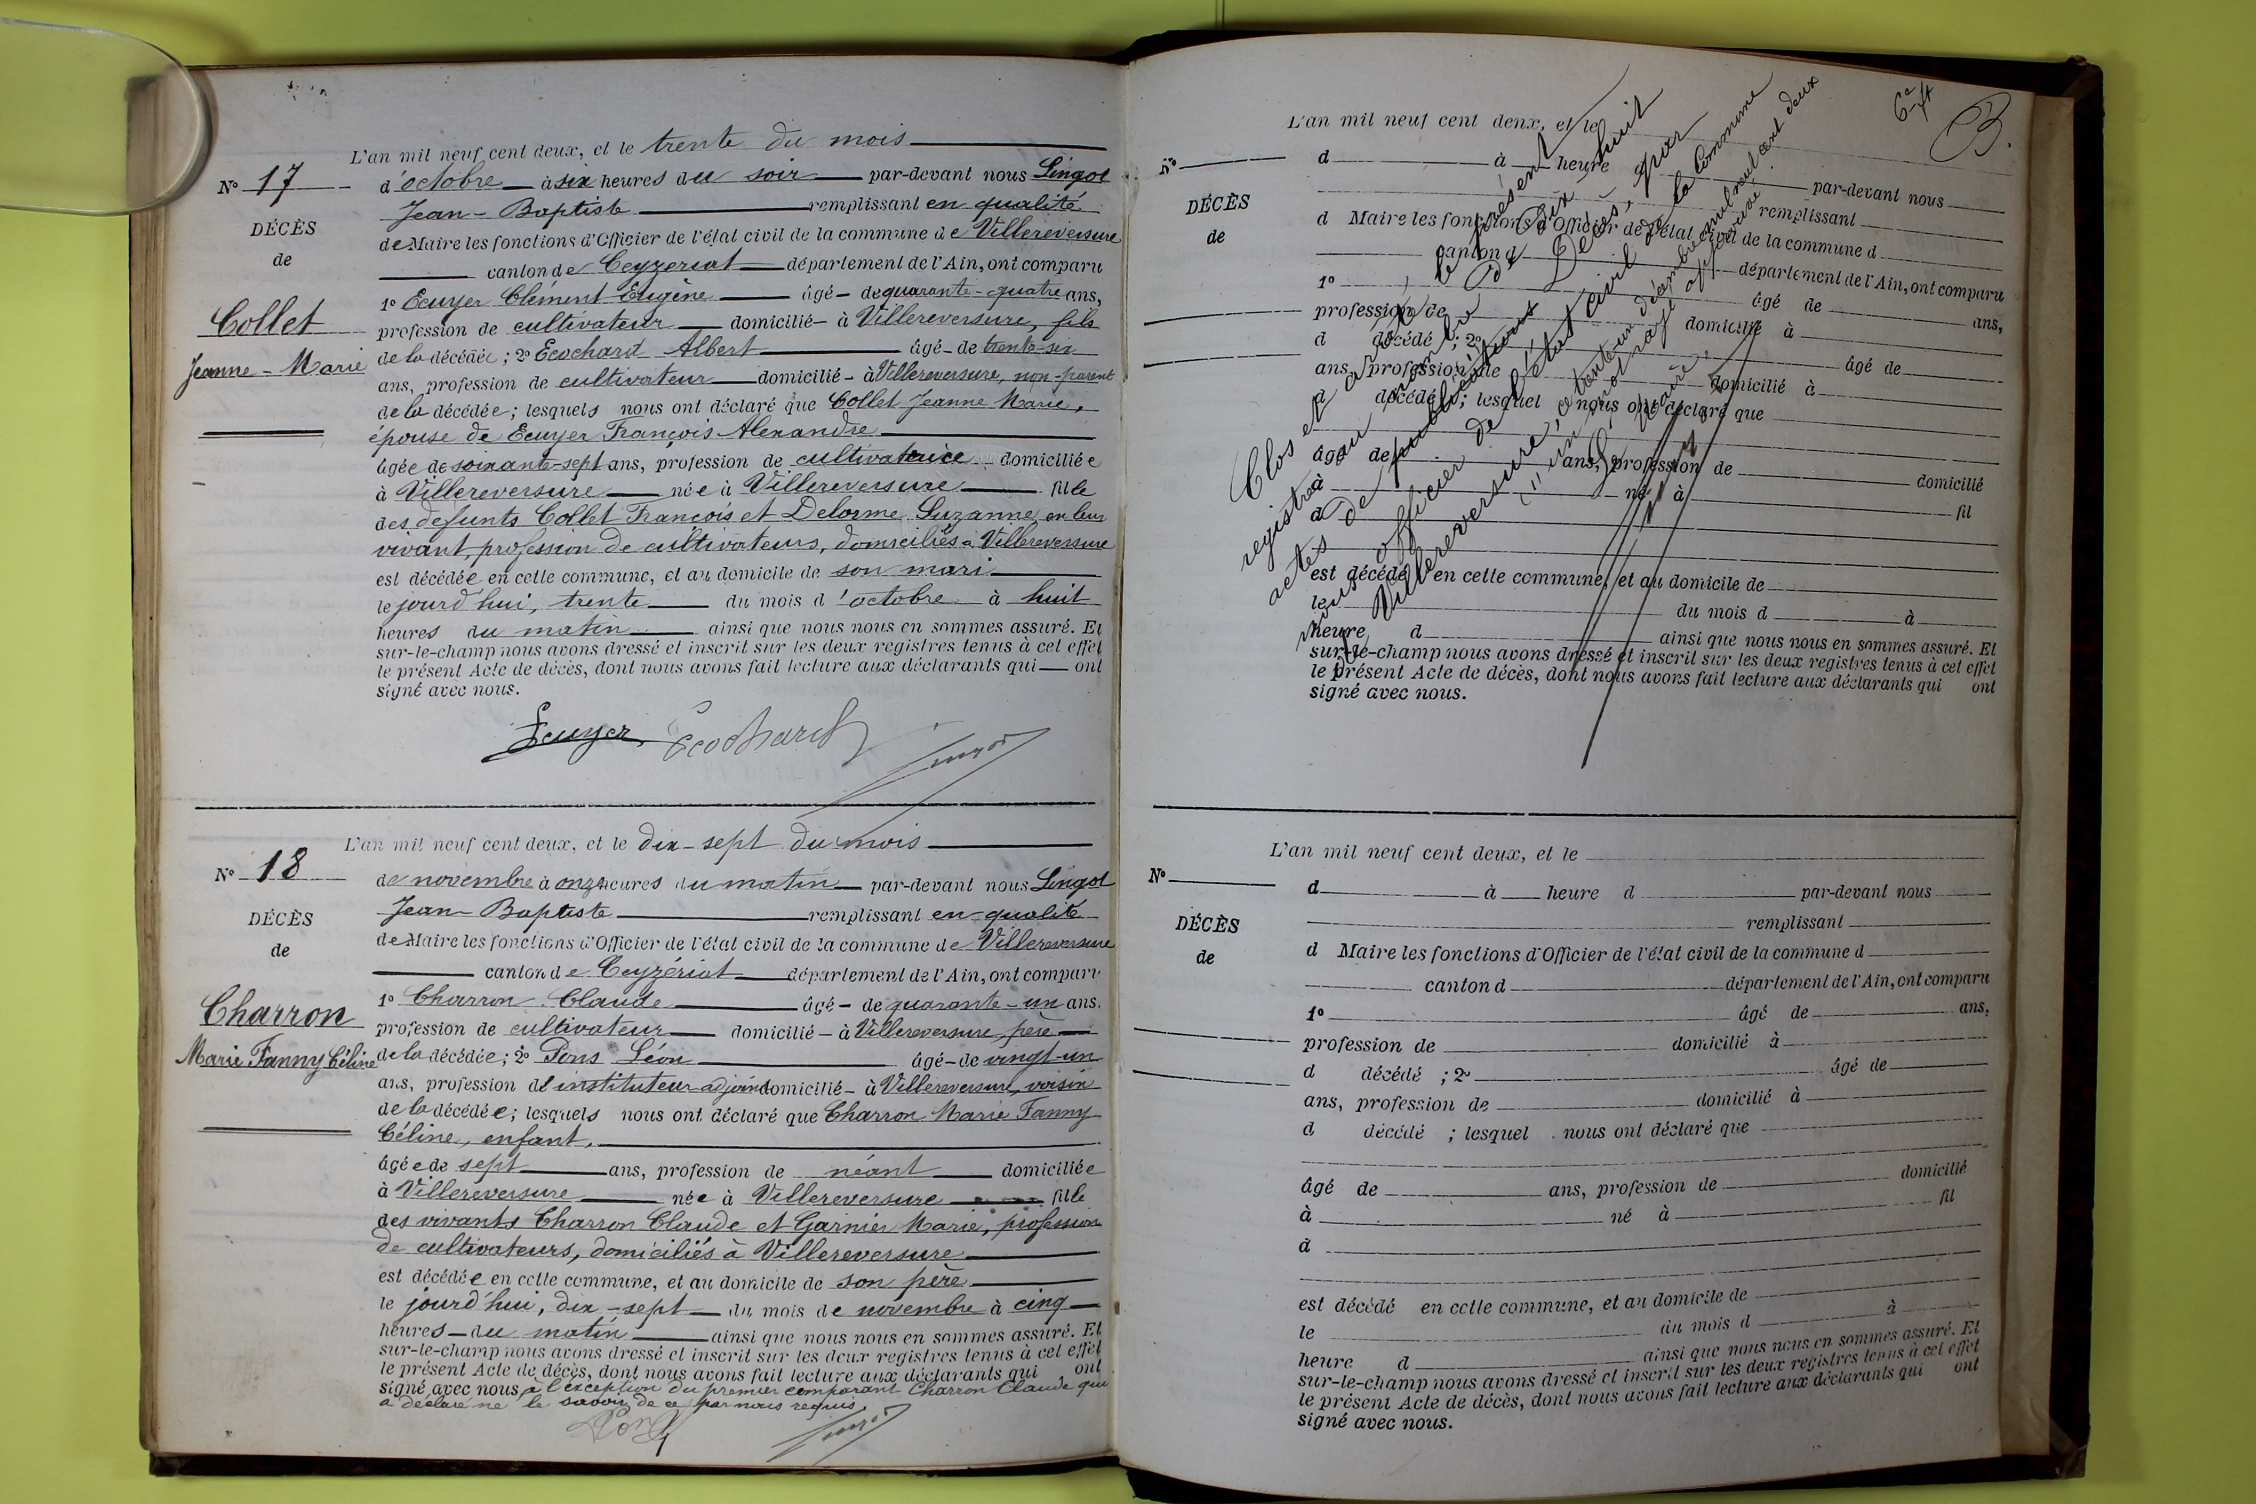 L'an mil neuf cent deux, et le trente du mois
N° 17
d'octobre à six heures du soir par-devant nous Lingot
Jean-Baptiste remplissant en qualité
DÉCÈS
de Maire les fonctions d'Officier de l'état civil de la commune de Villereversure
de
canton de Ceyzeriat département de l'Ain, ont comparu
1° Ecuyer Clément Eugène âgé de quarante-quatre ans,
Collet
profession de cultivateur domicilié à Villereversure, fils
Jeanne-Marie
de la décédée ; 2° Ecochard Albert âgé de trente-six
ans, profession de cultivateur domicilié à Villereversure, non-parent
de la décédée ; lesquels nous ont déclaré que Collet Jeanne Marie,
épouse de Ecuyer François Alexandre
âgée de soixante-sept ans, profession de cultivatrice domiciliée
à Villereversure née à Villereversure fille
des défunts Collet François et Delorme Suzanne, en leur
vivant, profession de cultivateurs, domiciliés à Villereversure
est décédée en cette commune, et au domicile de son mari
le jourd'hui, trente du mois d'octobre à huit
heures du matin ainsi que nous nous en sommes assuré. Et
sur-le-champ nous avons dressé et inscrit sur les deux registres tenus à cet effet
le présent Acte de décès, dont nous avons fait lecture aux déclarants qui ont
signé avec nous.
Ecuyer Ecochard
Lingot
L'an mil neuf cent deux, et le dix-sept du mois
N° 18
de novembre à onze heures du matin par-devant nous Lingot
Jean-Baptiste remplissant en qualité
DÉCÈS
de Maire les fonctions d'Officier de l'état civil de la commune de Villereversure
de
canton de Ceyzériat département de l'Ain, ont comparu
1° Charron Claude âgé de quarante-un ans.
Charron
profession de cultivateur domicilié à Villereversure, père
Marie Fanny Céline
de la décédée ; 2° Pons Léon âgé de vingt-un
ans, profession de instituteur-adjoint domicilié à Villereversure, voisin
de la décédée ; lesquels nous ont déclaré que Charron Marie Fanny
Céline, enfant,
âgée de sept ans, profession de néant domiciliée
à Villereversure née à Villereversure fille
des vivants Charron Claude et Garnier Marie, profession
de cultivateurs, domiciliés à Villereversure
est décédée en cette commune, et au domicile de son père
le jourd'hui, dix-sept du mois de novembre à cinq
heures du matin ainsi que nous nous en sommes assuré. Et
sur-le-champ nous avons dressé et inscrit sur les deux registres tenus à cet effet
le présent Acte de décès, dont nous avons fait lecture aux déclarants qui ont
signé avec nous à l'exception du premier comparant Charron Claude qui
a déclaré ne le savoir, de ce par nous requis
Pons Lingot
L'an mil neuf cent deux, et le
N°
d à heure
par-devant nous
DÉCÈS
remplissant
de
d Maire les fonctions d'Officier de l'état civil de la commune d
canton d département de l'Ain, ont comparu
1° âgé de ans,
profession de domicilié à
d décédé ; 2° âgé de
ans, profession de domicilié à
d décédé ; lesquel nous ont déclaré que
âgé de ans, profession de domicilié
à né à fil
d
est décédé en cette commune, et au domicile de
le du mois d à
heure d ainsi que nous nous en sommes assuré. Et
sur-le-champ nous avons dressé et inscrit sur les deux registres tenus à cet effet
le présent Acte de décès, dont nous avons fait lecture aux déclarants qui ont
signé avec nous.
Clos et arrêté, le présent
registre au nombre de dix-huit
actes de publications Décès, par
nous officier de l'état civil de la commune
de Villereversure, ce trente-un décembre mil neuf cent deux
("un mot rayé approuvé.
Le Maire,
L'an mil neuf cent deux, et le
N°
d à heure d par-devant nous
DÉCÈS
remplissant
de
d Maire les fonctions d'Officier de l'état civil de la commune d
canton d département de l'Ain, ont comparu
1° âgé de ans,
profession de domicilié à
d décédé ; 2° âgé de
ans, profession de domicilié à
d décédé ; lesquel nous ont déclaré que
âgé de ans, profession de domicilié
à né à fil
d
est décédé en cette commune, et au domicile de
le du mois d à
heure d ainsi que nous nous en sommes assuré. Et
sur-le-champ nous avons dressé et inscrit sur les deux registres tenus à cet effet
le présent Acte de décès, dont nous avons fait lecture aux déclarants qui ont
signé avec nous.